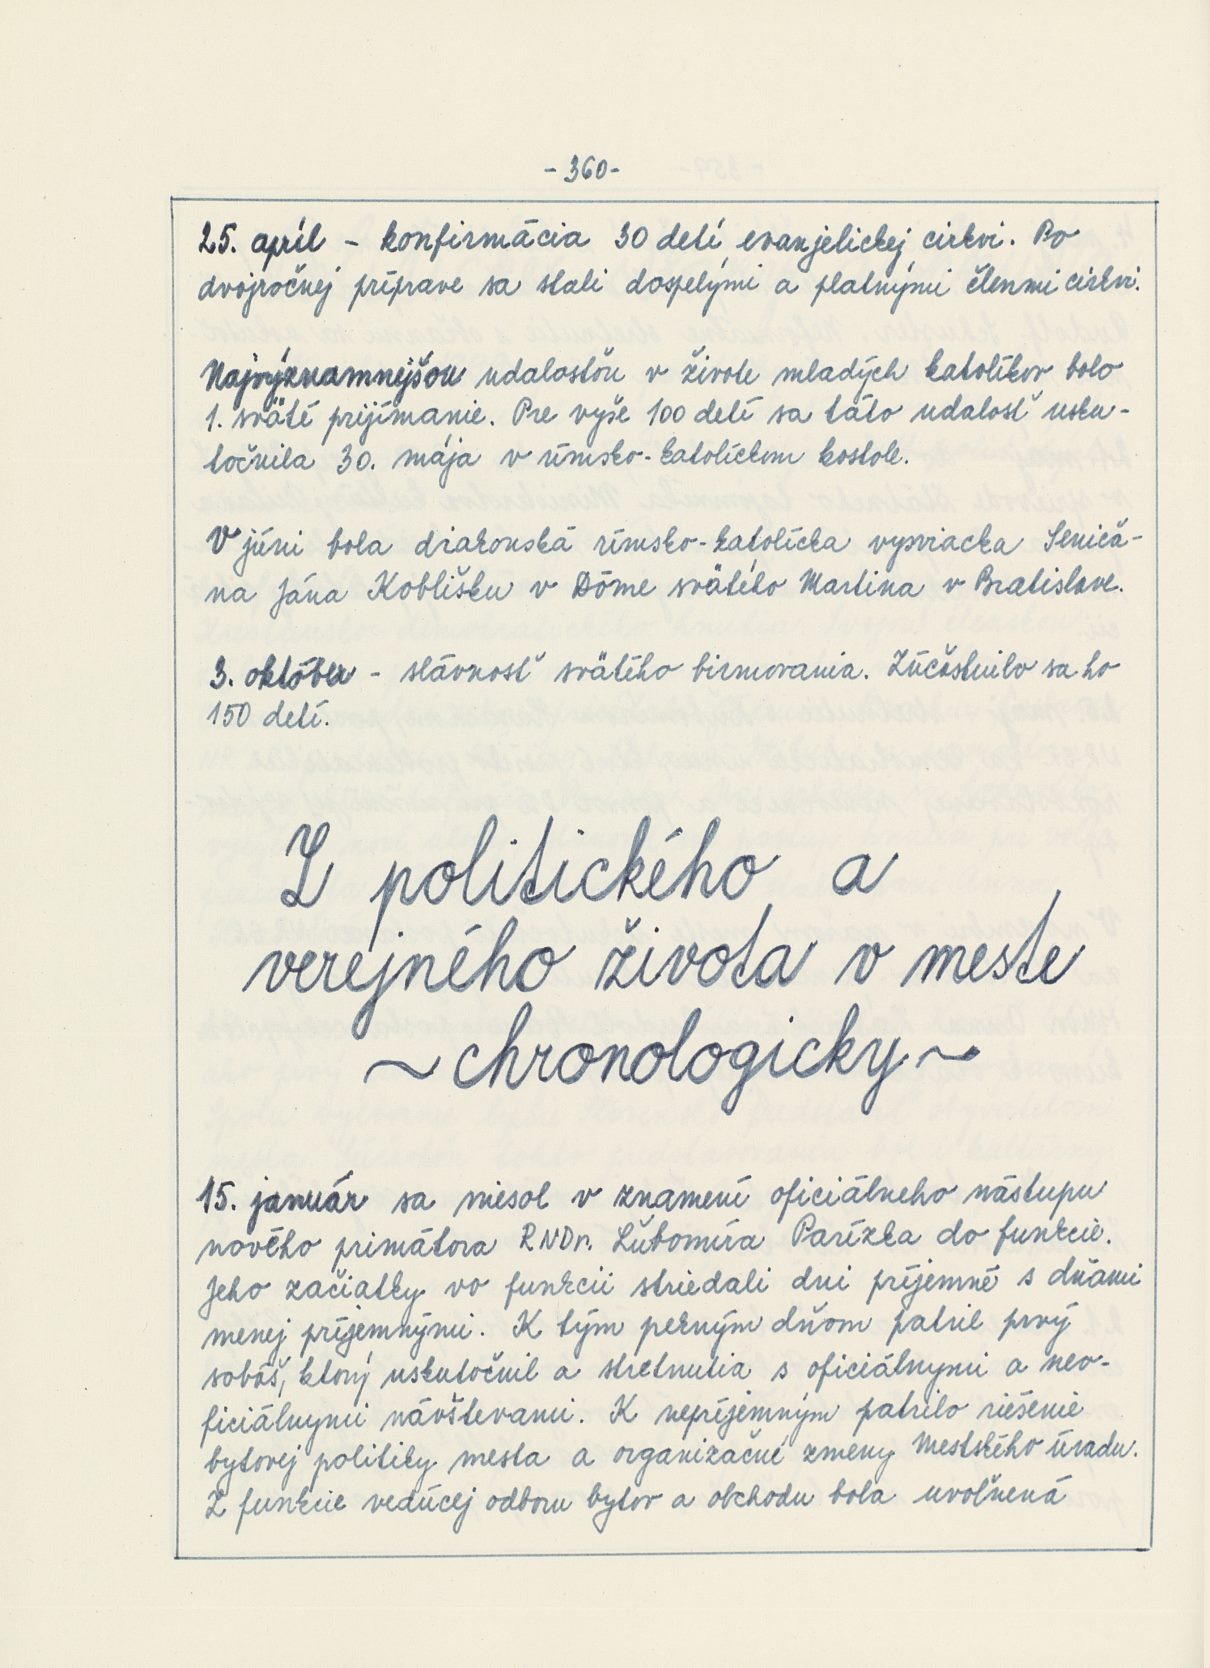 - 360 -
25. apríl - konfirmácia 30 detí evanjelickej cirkvi. Po
dvojročnej príprave sa stali dospelými a platnými členmi cirkvi.
Najvýznamnejšou udalosťou v živote mladých katolíkov bolo
1. sväté prijímanie. Pre vyše 100 detí sa táto udalosť usku-
točnila 30. mája v rímsko-katolíckom kostole.
V júni bola diakonská rímsko-katolícka vysviacka Seniča-
na Jána Koblišku v Dóme svätého Martina v Bratislave.
3. október - slávnosť svätého birmovania. Zúčastnilo sa ho
150 detí.
Z politického a
verejného života v meste
~ chronologicky ~
15. január sa niesol v znamení oficiálneho nástupu
nového primátora RNDr. Ľubomíra Parízka do funkcie.
Jeho začiatky vo funkcii striedali dni príjemné s dňami
menej príjemnými. K tým pekným dňom patril prvý
sobáš, ktorý uskutočnil a stretnutia s oficiálnymi a neo-
ficiálnymi návštevami. K nepríjemným patrilo riešenie
bytovej politiky mesta a organizačné zmeny Mestského úradu.
Z funkcie vedúcej odboru bytov a obchodu bola uvoľnená